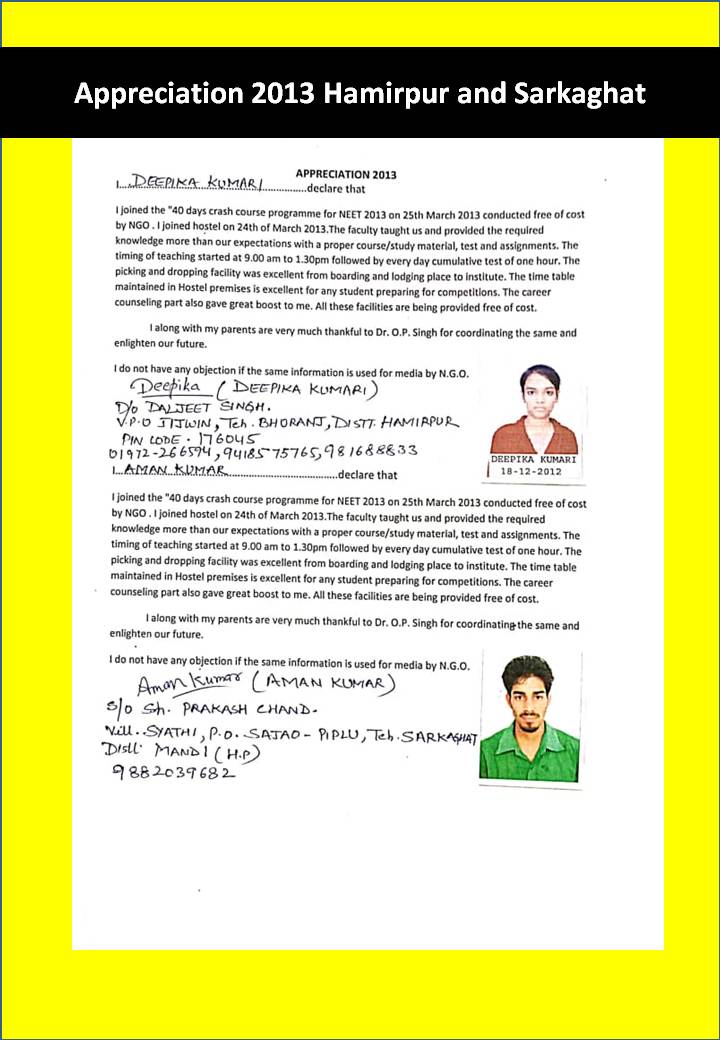 Appreciation 2013 Hamirpur and Sarkaghat
APPRECIATION 2013
I...DEEPIKA KUMARI................declare that
I joined the "40 days crash course programme for NEET 2013 on 25th March 2013 conducted free of cost
by NGO . I joined hostel on 24th of March 2013.The faculty taught us and provided the required
knowledge more than our expectations with a proper course/study material, test and assignments. The
timing of teaching started at 9.00 am to 1.30pm followed by every day cumulative test of one hour. The
picking and dropping facility was excellent from boarding and lodging place to institute. The time table
maintained in Hostel premises is excellent for any student preparing for competitions. The career
counseling part also gave great boost to me. All these facilities are being provided free of cost.
I along with my parents are very much thankful to Dr. O.P. Singh for coordinating the same and
enlighten our future.
I do not have any objection if the same information is used for media by N.G.O.
Deepika (DEEPIKA KUMARI)
D/o DALJEET SINGH.
V.P.O JIJWIN, Teh. BHORANJ, DISTT. HAMIRPUR
PIN CODE - 176045
01972-266594, 9418575765, 981688833
DEEPIKA KUMARI
18-12-2012
I...AMAN KUMAR................declare that
I joined the "40 days crash course programme for NEET 2013 on 25th March 2013 conducted free of cost
by NGO . I joined hostel on 24th of March 2013.The faculty taught us and provided the required
knowledge more than our expectations with a proper course/study material, test and assignments. The
timing of teaching started at 9.00 am to 1.30pm followed by every day cumulative test of one hour. The
picking and dropping facility was excellent from boarding and lodging place to institute. The time table
maintained in Hostel premises is excellent for any student preparing for competitions. The career
counseling part also gave great boost to me. All these facilities are being provided free of cost.
I along with my parents are very much thankful to Dr. O.P. Singh for coordinating the same and
enlighten our future.
I do not have any objection if the same information is used for media by N.G.O.
Aman Kumar (AMAN KUMAR)
S/o Sh. PRAKASH CHAND.
Vill. SYATHI, P.O. SAJAO - PIPLU, Teh. SARKAGHAT
Distt. MANDI (H.P)
9882039682